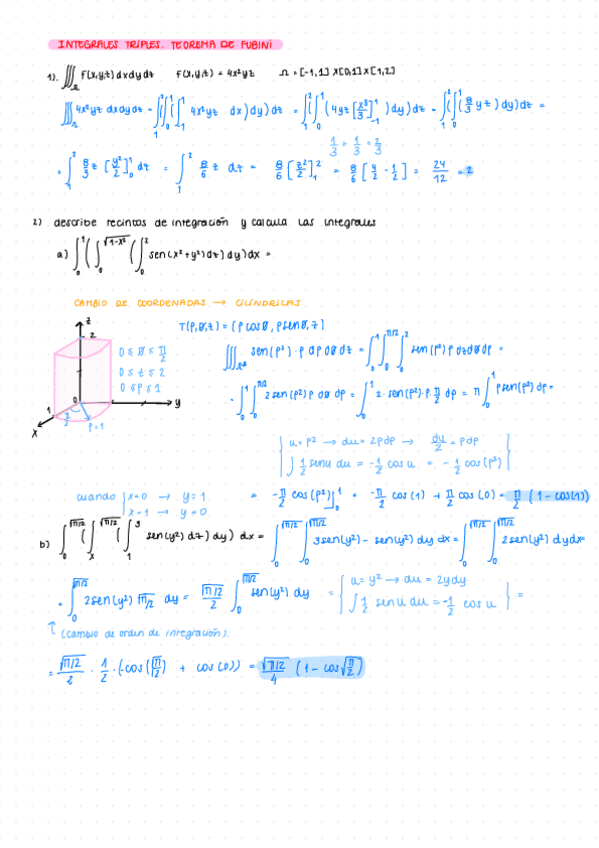 INTEGRALES TRIPLES. TEOREMA DE FUBINI
1). ∭_Ω f(x,y,z) dxdydz f(x,y,z) = 4x²yz Ω = [-1,1] x [0,1] x [1,2]
∭_Ω 4x²yz dxdydz = ∫₁² (∫₀¹ (∫₋₁¹ 4x²yz dx) dy) dz = ∫₁² (∫₀¹ (4yz [x³/3]₋₁¹) dy) dz = ∫₁² (∫₀¹ (8/3 yz) dy) dz =
1/3 + 1/3 = 2/3
= ∫₁² 8/3 z [y²/2]₀¹ dz = ∫₁² 8/6 z dz = 8/6 [z²/2]₁² = 8/6 [4/2 - 1/2] = 24/12 = 2
2) describe recintos de integración y calcula las integrales
a) ∫₀¹ (∫₀^√(1-x²) (∫₀² sen(x²+y²) dz) dy) dx =
CAMBIO DE COORDENADAS → CILÍNDRICAS.
T(ρ,θ,z) = (ρ cosθ, ρ senθ, z)
z
2
0 ≤ θ ≤ π/2
0 ≤ z ≤ 2
0 ≤ ρ ≤ 1
0
y
1
x
ρ=1
sen(ρ²) · ρ dρ dθ dz = ∫₀¹ ∫₀^π/2 ∫₀² sen(ρ²) ρ dz dθ dρ =
= ∫₀¹ ∫₀^π/2 2 sen(ρ²) ρ dθ dρ = ∫₀¹ 2 · sen(ρ²) · ρ · π/2 dρ = π ∫₀¹ ρ sen(ρ²) dρ =
u = ρ² → du = 2ρdρ → du/2 = ρdρ
∫ 1/2 senu du = -1/2 cos u = -1/2 cos(ρ²)
= -π/2 cos(ρ²)]₀¹ = -π/2 cos(1) + π/2 cos(0) = π/2 (1 - cos(1))
cuando x=0 → y=1.
x=1 → y=0.
b) ∫₀^√(π/2) (∫ₓ^√(π/2) (∫₁³ sen(y²) dz) dy) dx = ∫₀^√(π/2) ∫₀^√(π/2) 3sen(y²) - sen(y²) dy dx = ∫₀^√(π/2) ∫₀^√(π/2) 2sen(y²) dy dx =
= ∫₀^√(π/2) 2sen(y²) √(π/2) dy = √(π/2)/2 ∫₀^√(π/2) sen(y²) dy = u = y² → du = 2ydy
∫ 1/2 sen u du = -1/2 cos u =
↑ (cambio de orden de integración).
= √(π/2)/2 · 1/2 · (-cos(√(π/2)) + cos(0)) = √(π/2)/4 (1 - cos√(π/2))